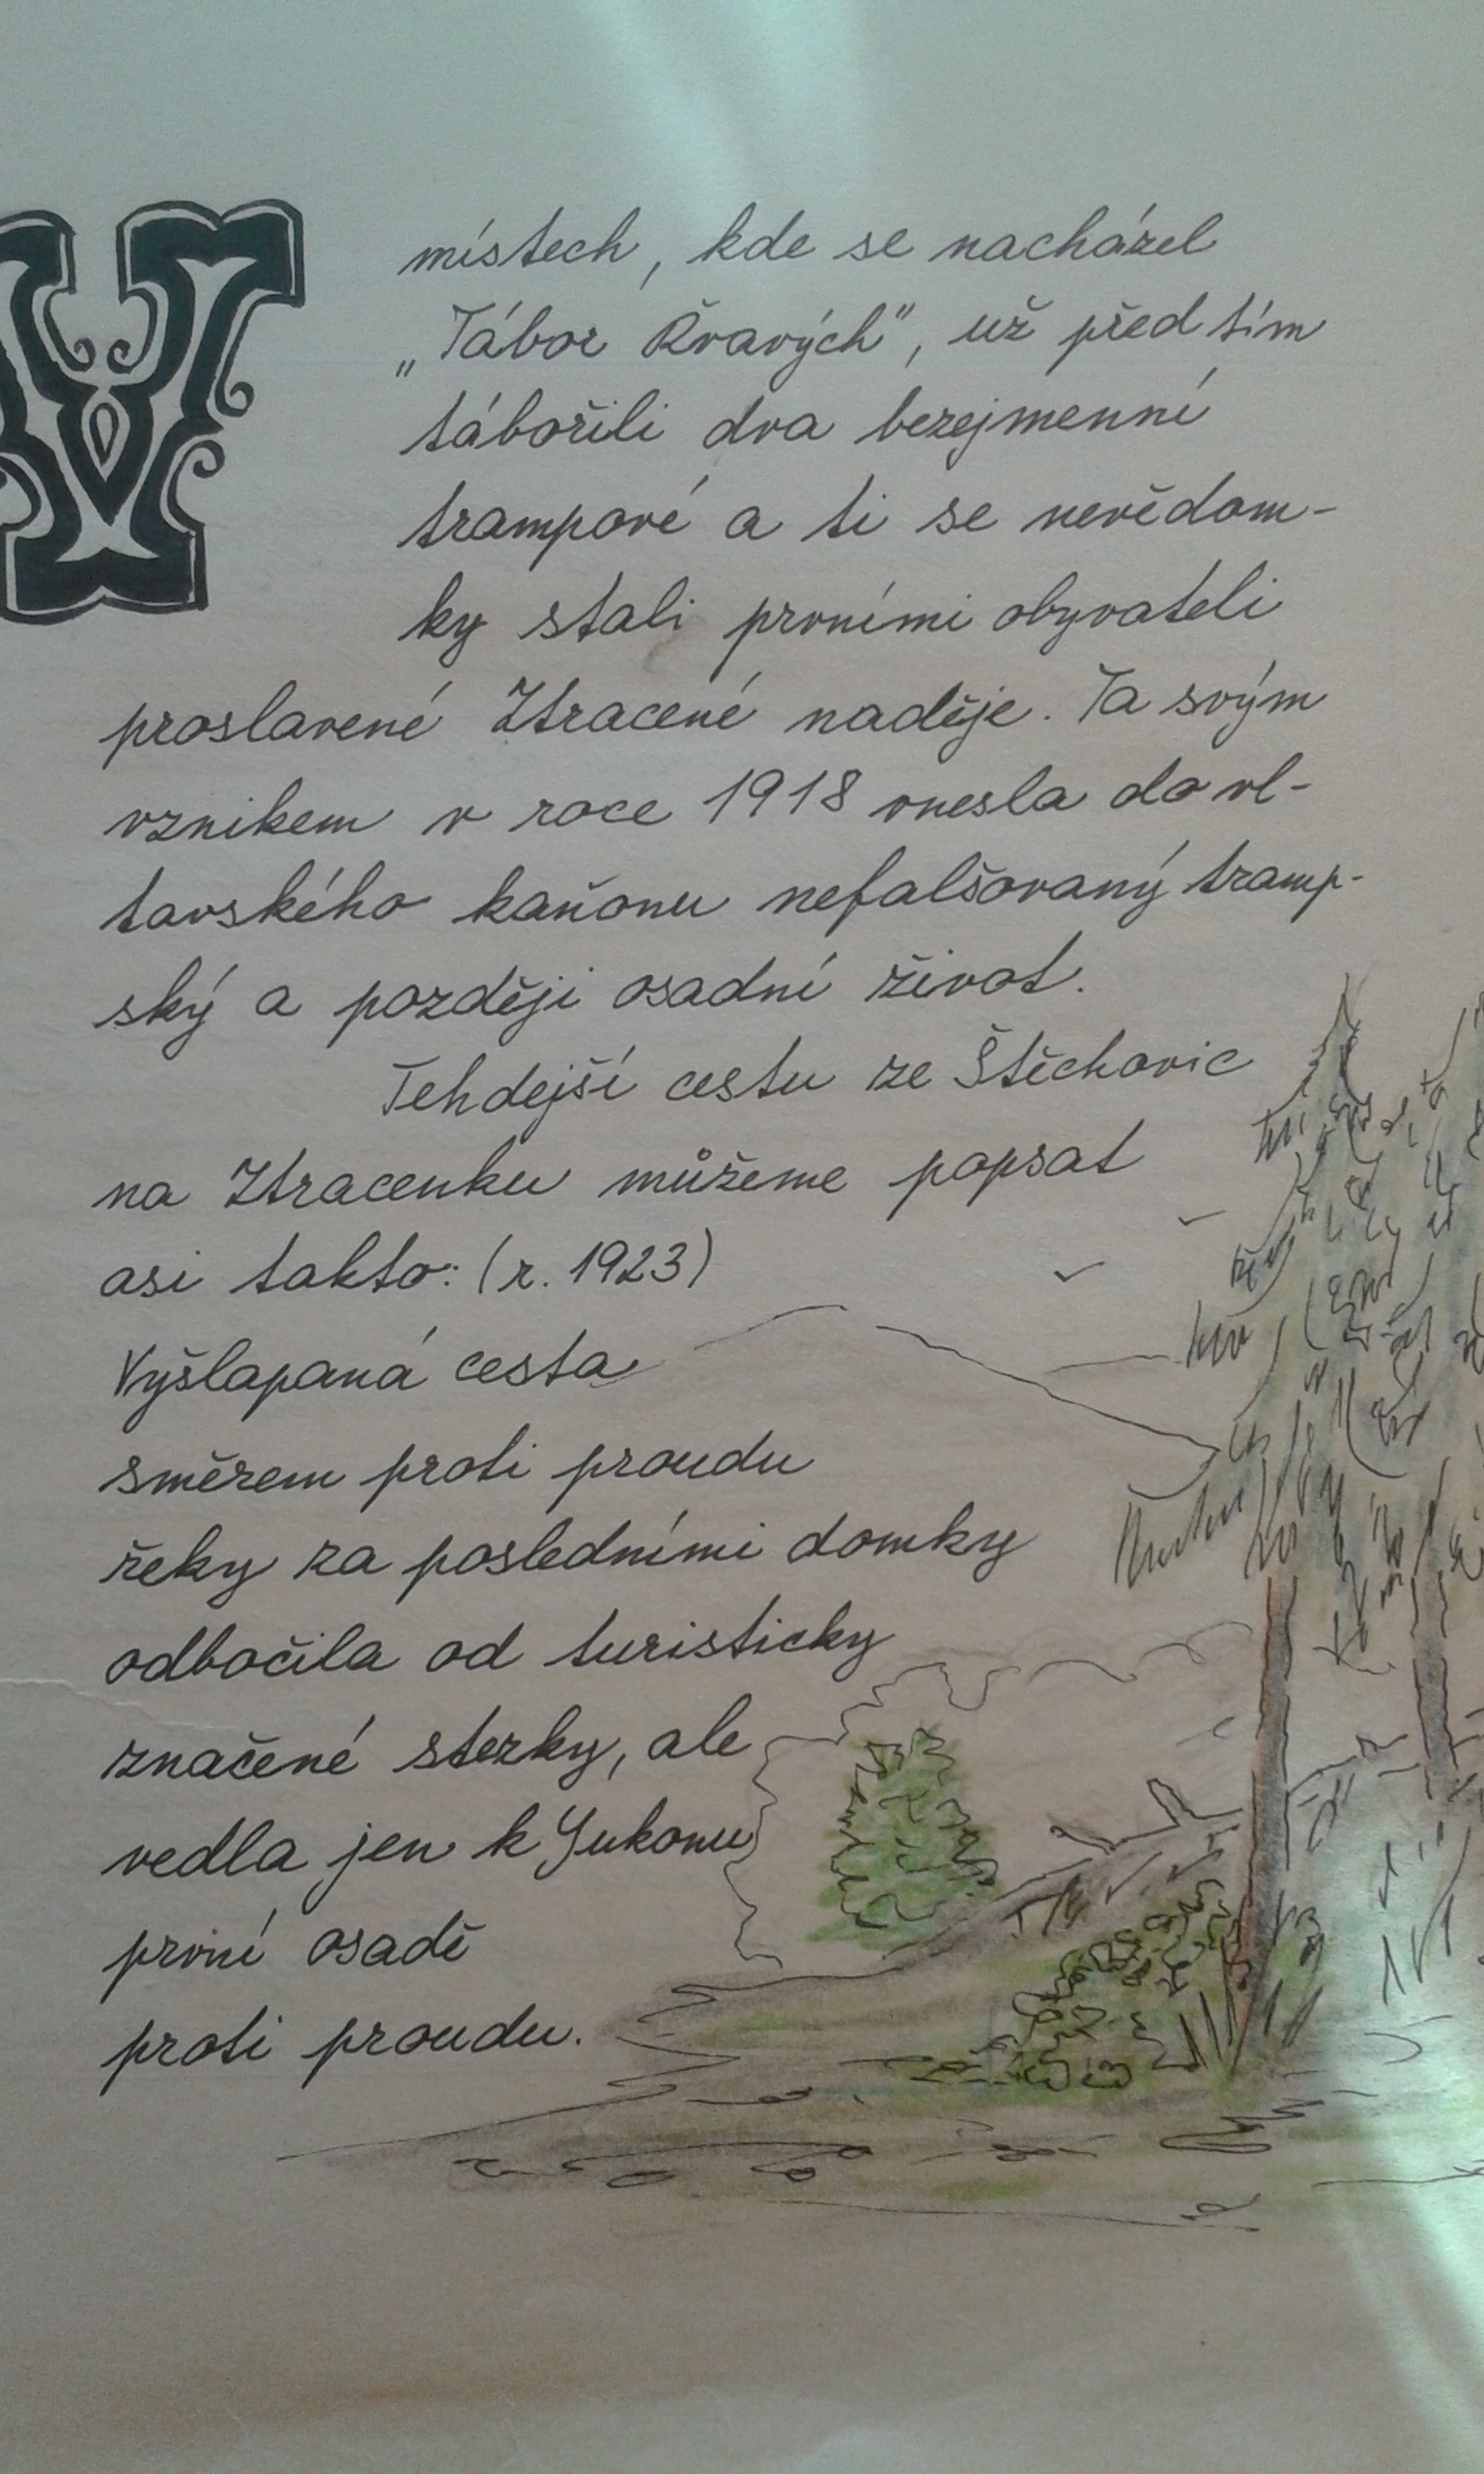 V místech, kde se nacházel
„Tábor Řvavých", už předtím
tábořili dva bezejmenní
trampové a ti se nevědom-
ky stali prvními obyvateli
proslavené Ztracené naděje. Ta svým
vznikem v roce 1918 vnesla do vl-
tavského kaňonu nefalšovaný tramp-
ský a později osadní život.
Tehdejší cestu ze Štěchovic
na Ztracenku můžeme popsat
asi takto: (r. 1923)
Vyšlapaná cesta
směrem proti proudu
řeky za posledními domky
odbočila od turisticky
značené stezky, ale
vedla jen k Yukonu
první osadě
proti proudu.